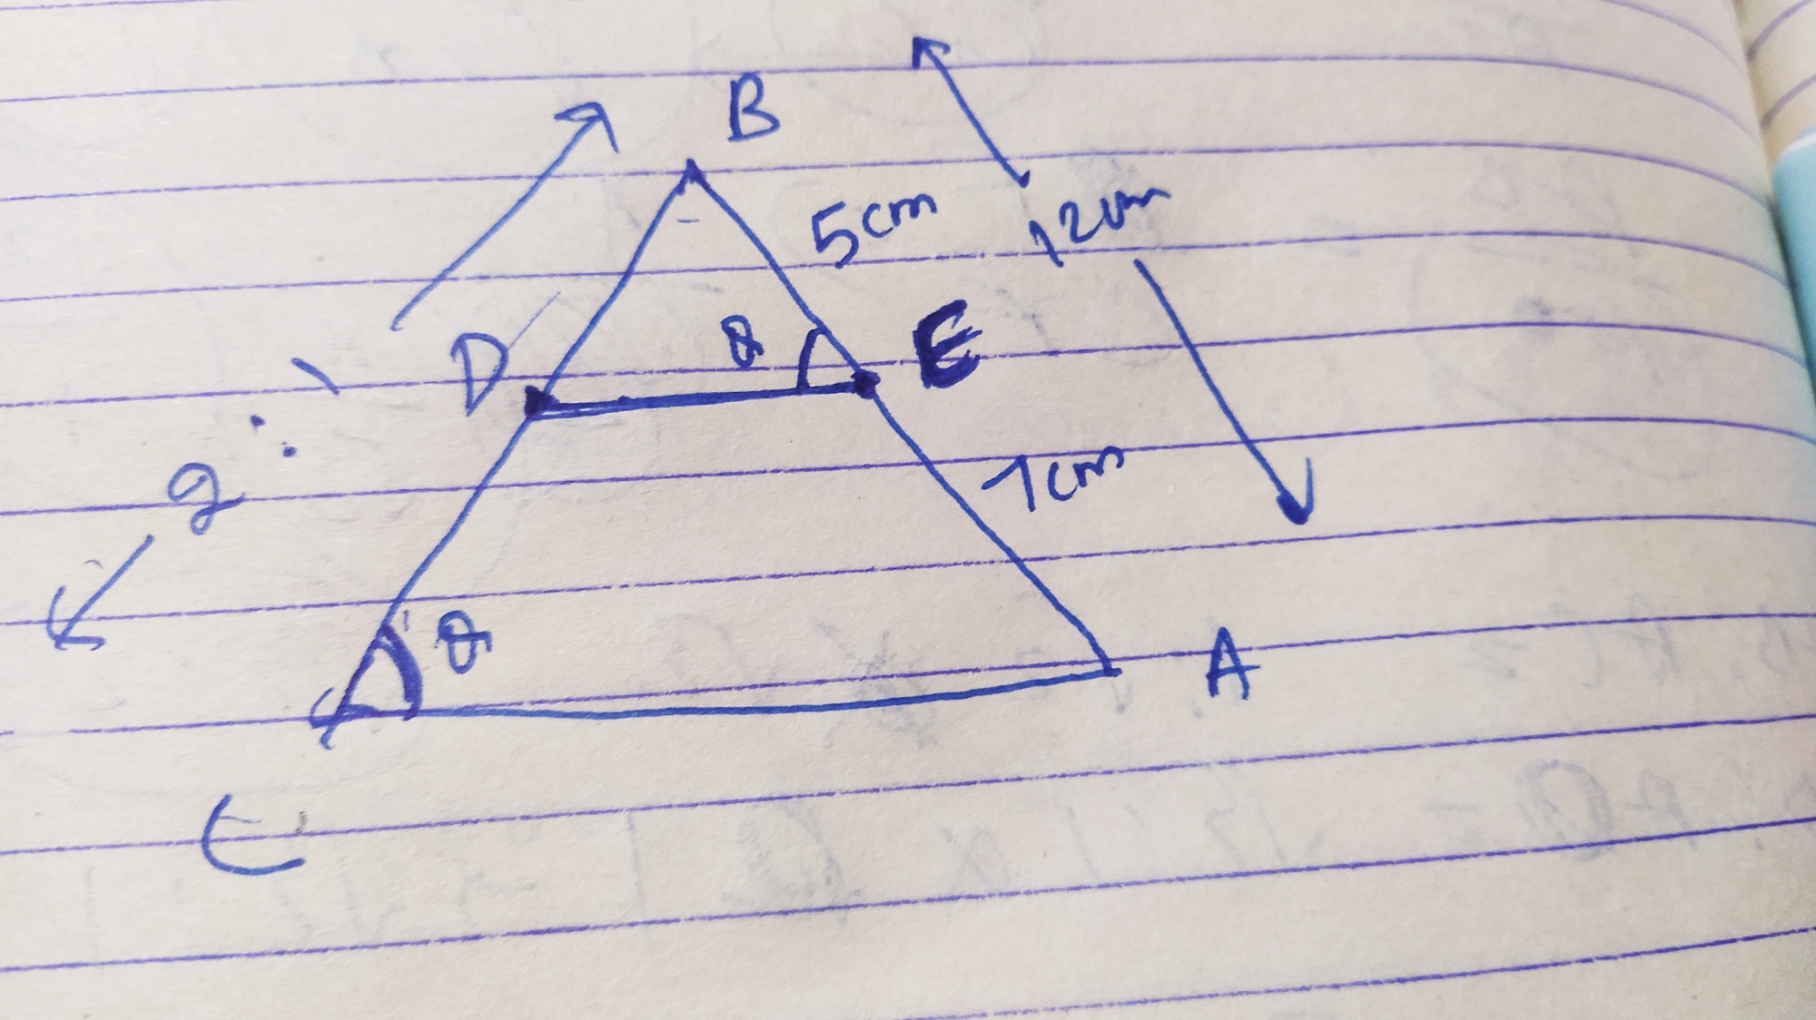 B
5cm
12cm
D
θ
E
7cm
θ
A
C